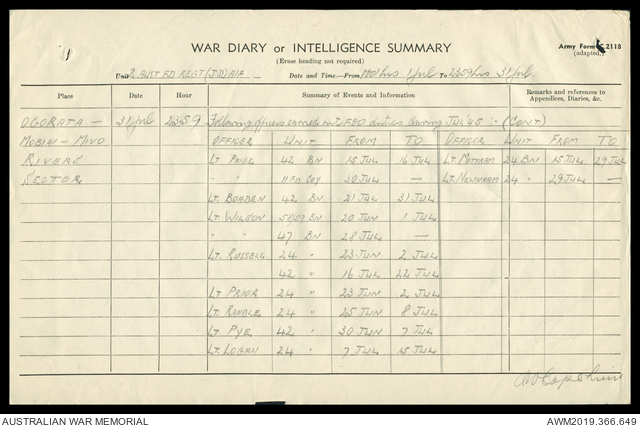 WAR DIARY or INTELLIGENCE SUMMARY
Army Form C.2118
(adapted.)
(Erase heading not required)
Unit 2 AUST FD REGT (JD) AIF
Date and Time—From 0001 hrs 1 Jul To 2359 hrs 31 Jul.
Place Date Hour Summary of Events and Information Remarks and references to Appendices, Diaries, &c.
OGORATA — 31 Jul 2359 Following officers carried out FOO duties during JUL '45 :- (CONT)
MOBIAI — MIVO OFFICER UNIT FROM TO OFFICER UNIT FROM TO
RIVERS LT PAIGE 42 BN 15 JUL 16 JUL LT. MOTTRAM 24 BN 15 JUL 29 JUL
SECTOR " " 11 FD COY 30 JUL — LT. NEWNHAM 24 " 29 JUL —
LT. BOADEN 42 BN 21 JUL 31 JUL
LT. WILSON 58/59 BN 20 JUN 1 JUL
" " 47 BN 28 JUL —
LT. RUSSELL 24 " 23 JUN 2 JUL
42 " 16 JUL 22 JUL
LT PRIOR 24 " 23 JUN 2 JUL
LT. RANDLE 24 " 25 JUN 8 JUL
LT. PYE 42 " 30 JUN 7 JUL
LT. LOGAN 24 " 7 JUL 15 JUL
AUSTRALIAN WAR MEMORIAL AWM2019.366.649